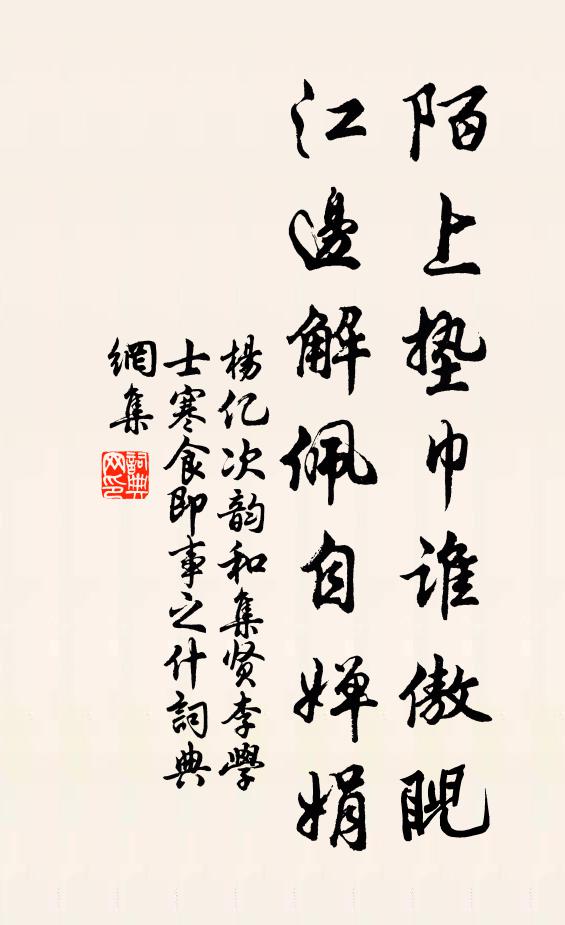 陌上墊巾誰傲睨
江邊解佩自嬋娟
楊亿次韵和集贤李學
士寒食即事之什詞典
網集
詞典
网印